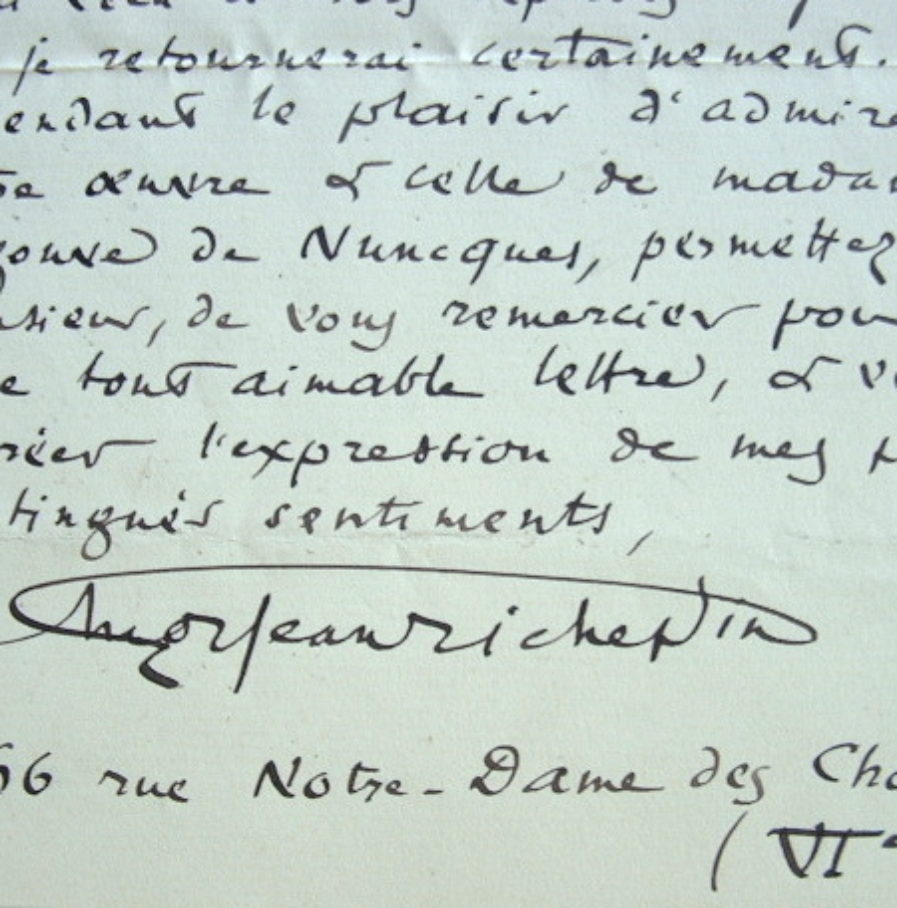 je retournerai certainement.
endant le plaisir d'admire
œuvre & celle de mada
gouve de Nuncques, permettez
sieur, de vous remercier pou
e tout aimable lettre, & v
réer l'expression de mes
tingués sentiments,
jean richepin
6 rue Notre-Dame des Cha
(VI